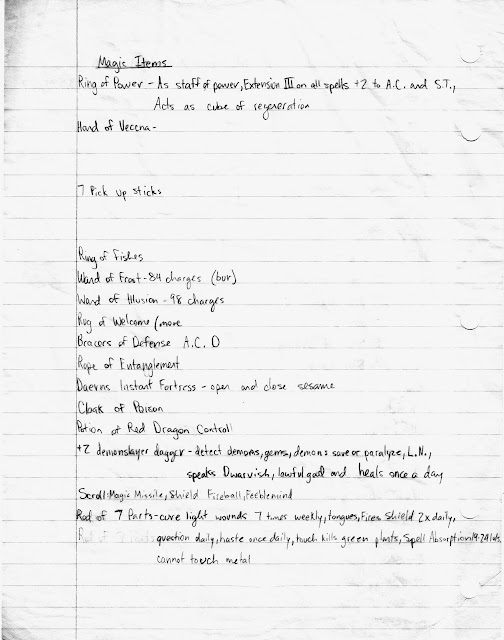 Magic Items
Ring of Power - As staff of power, Extension III on all spells +2 to A.C. and S.T.,
Acts as cube of regeneration
Hand of Vecna -
7 Pick up sticks
Ring of Fishes
Wand of Frost - 84 charges (bur)
Wand of Illusion - 98 charges
Rug of Welcome
Bracers of Defense A.C. 0
Rope of Entanglement
Daerns Instant Fortress - open and close sesame
Cloak of Poison
Potion of Red Dragon Controll
+2 demonslayer dagger - detect demons, gems, demons save or paralyze, L.N.,
speaks Dwarvish, lawful good and heals once a day
Scroll: Magic Missile, Shield Fireball, Feeblemind
Rod of 7 Parts - cure light wounds 7 times weekly, tongues, Fires Shield 2x daily,
question daily, haste once daily, touch kills green plants, Spell Absorption
cannot touch metal